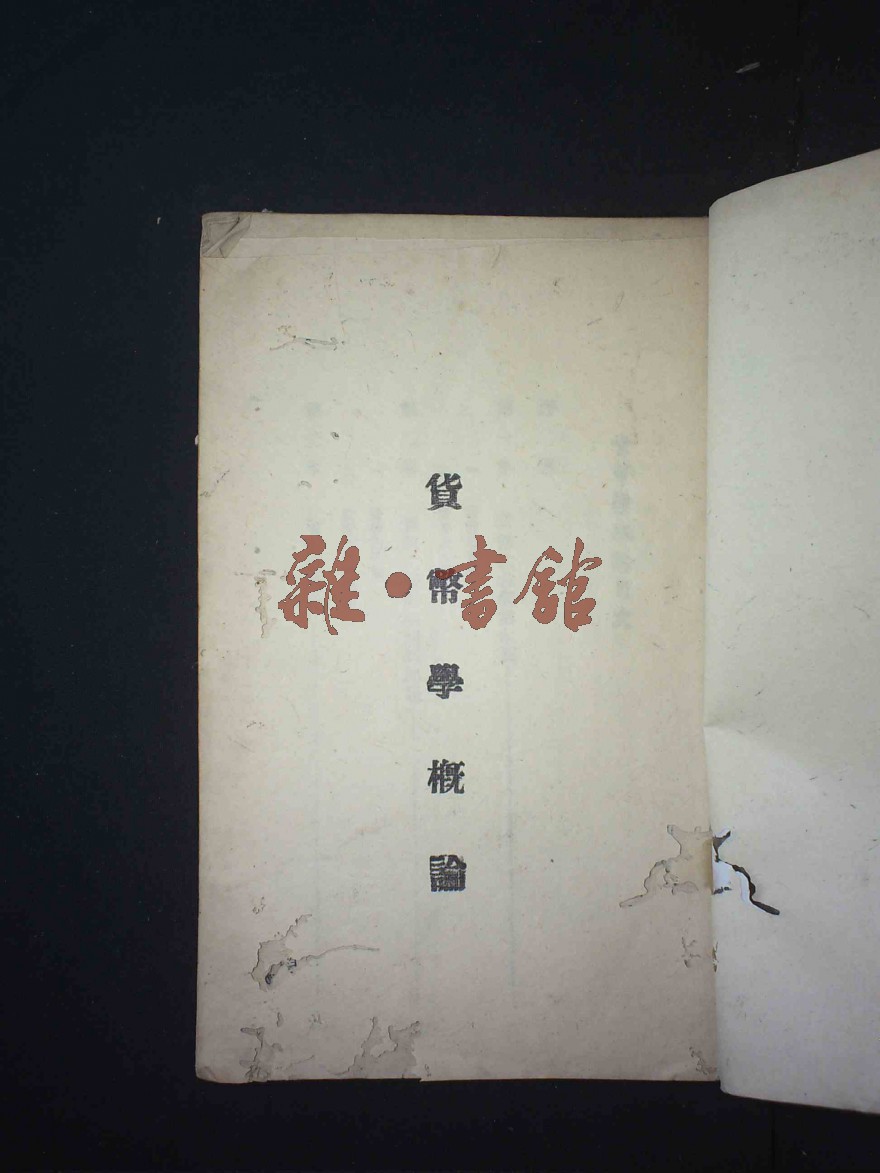 貨幣學概論
雜·書館